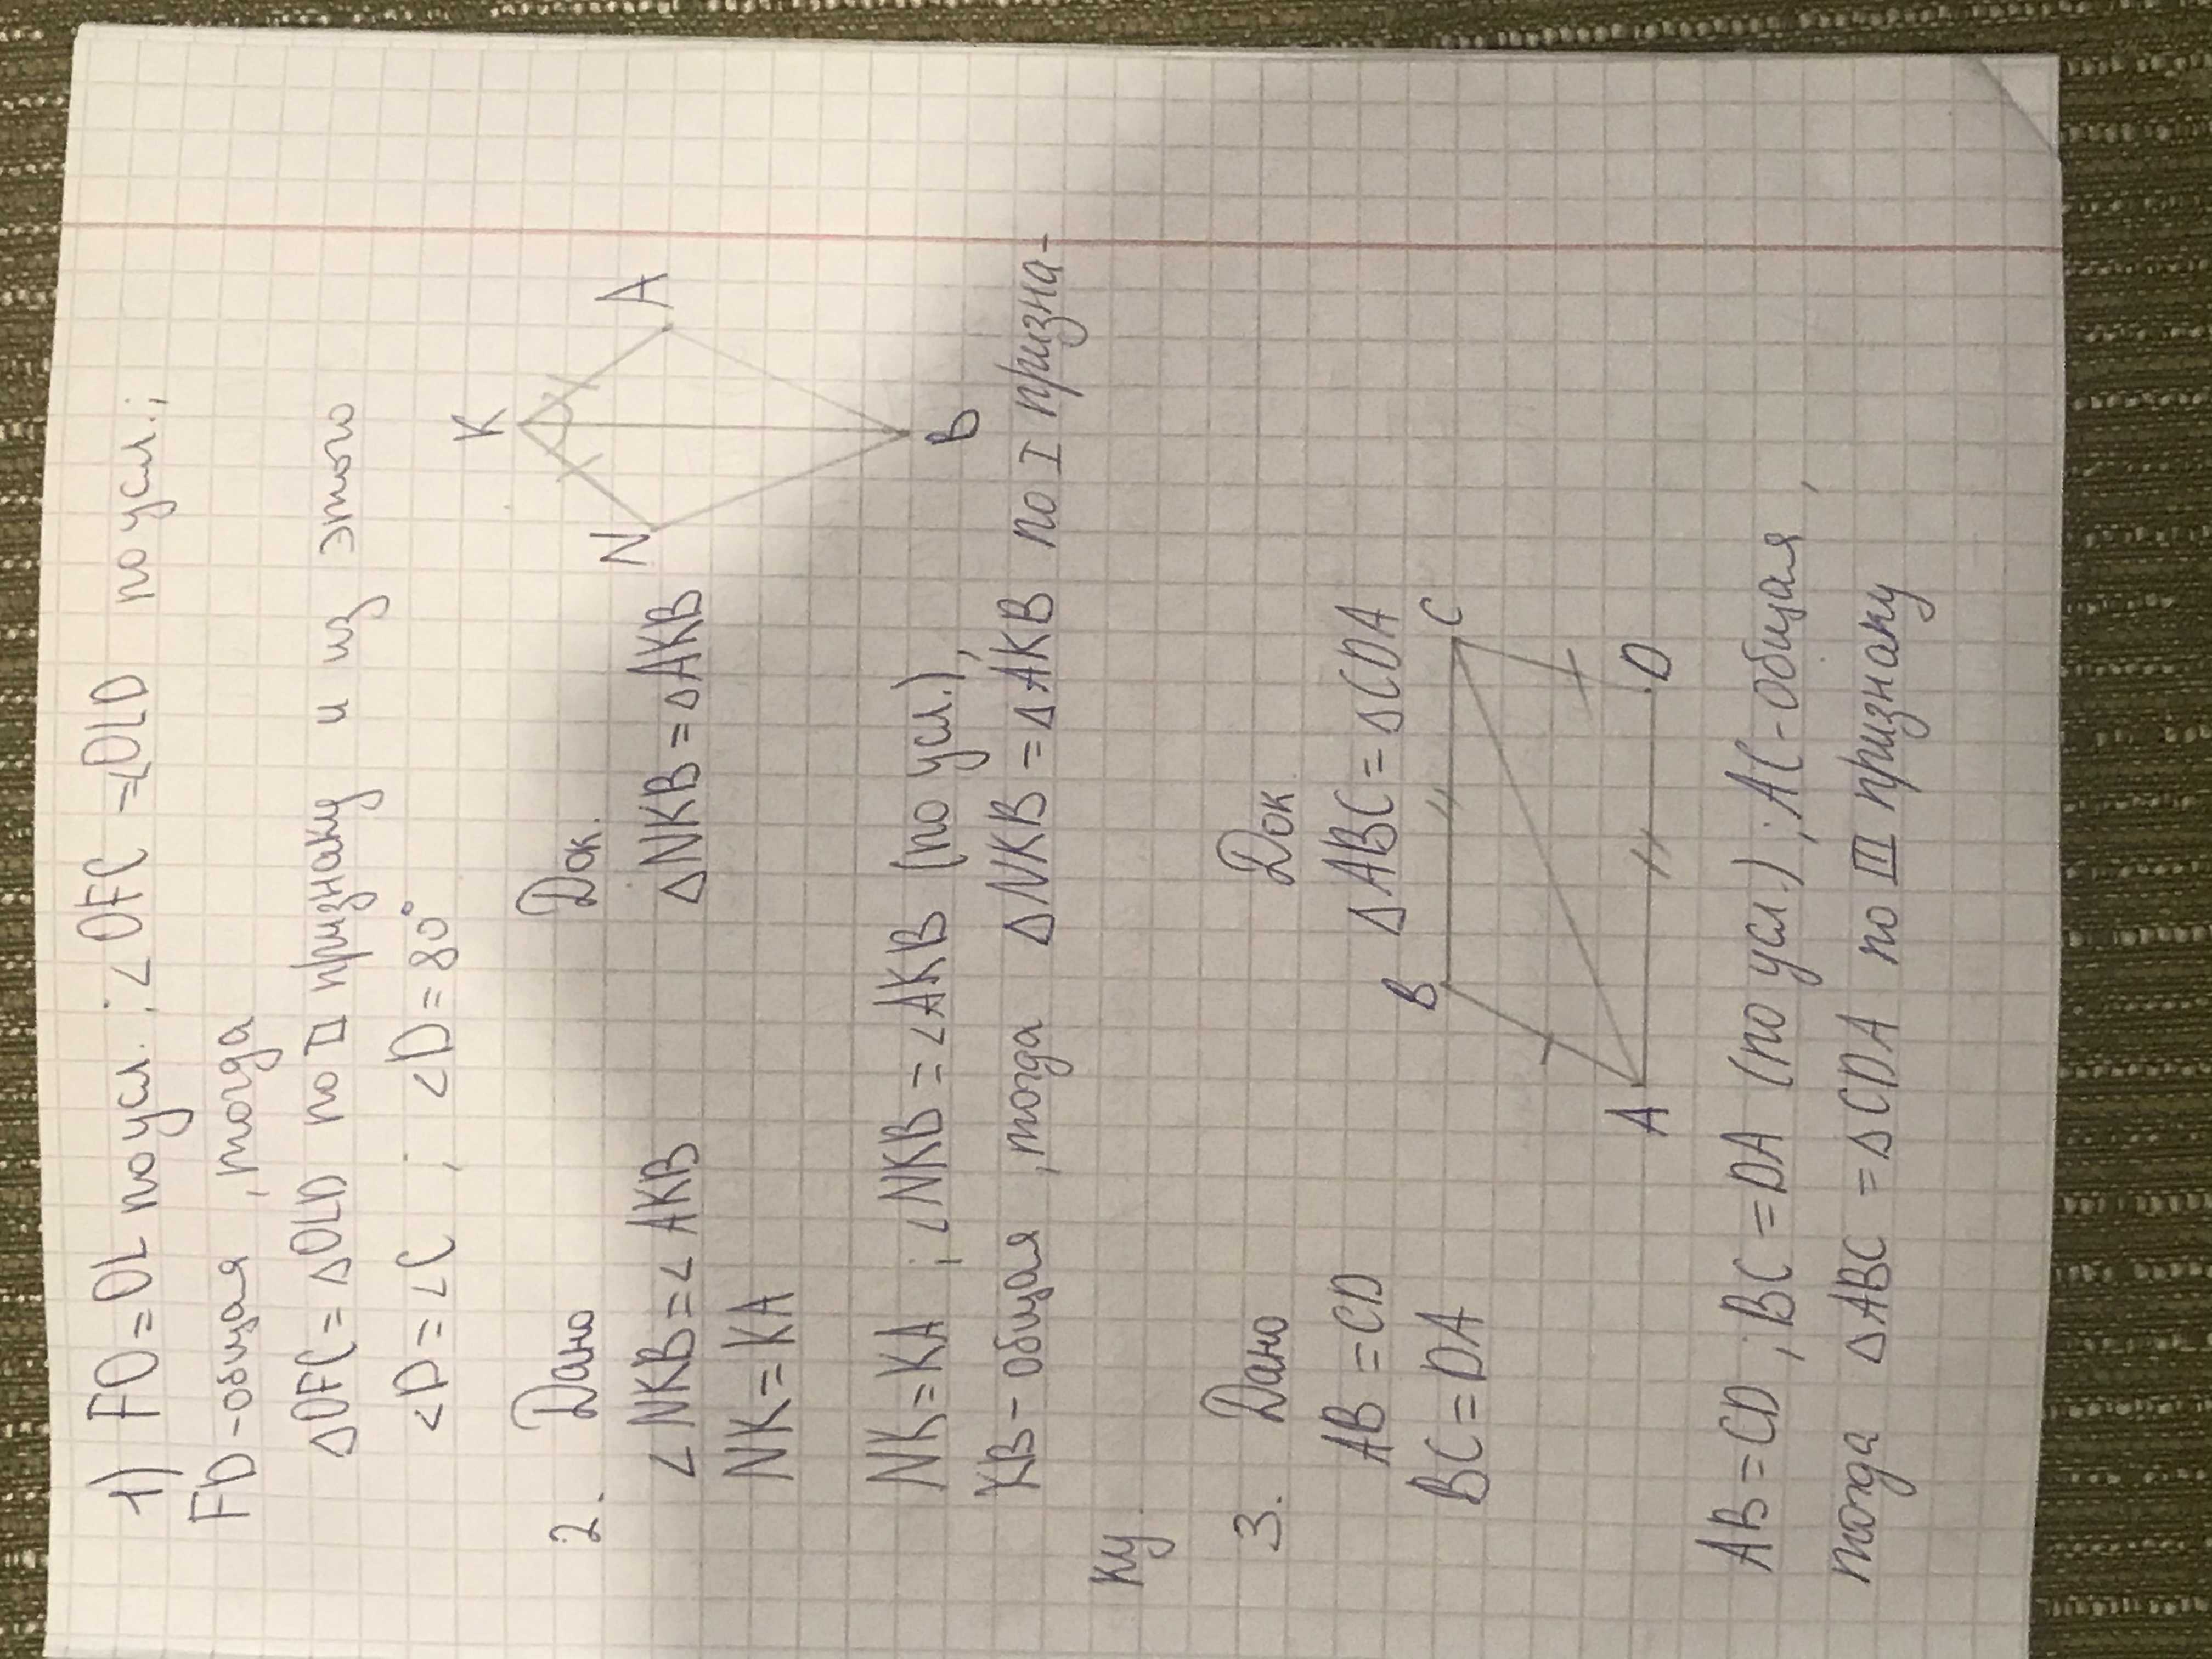 1) FO=OL по усл. ; ∠OFC =∠OLD по усл.;
FD-общая , тогда
ΔOFC= ΔOLD по II признаку и из этого
∠D=∠C ; ∠D=80°
2. Дано Док.
∠NKB=∠AKB ΔNKB=ΔAKB
NK=KA
K
N
A
B
NK=KA ; ∠NKB=∠AKB (по усл.),
KB-общая , тогда ΔNKB=ΔAKB по I призна-
ку.
3. Дано Док
AB=CD ΔABC=ΔCDA
BC=DA
B
C
A
D
AB=CD ; BC=DA (по усл.) ; AC-общая ,
тогда ΔABC=ΔCDA по III признаку